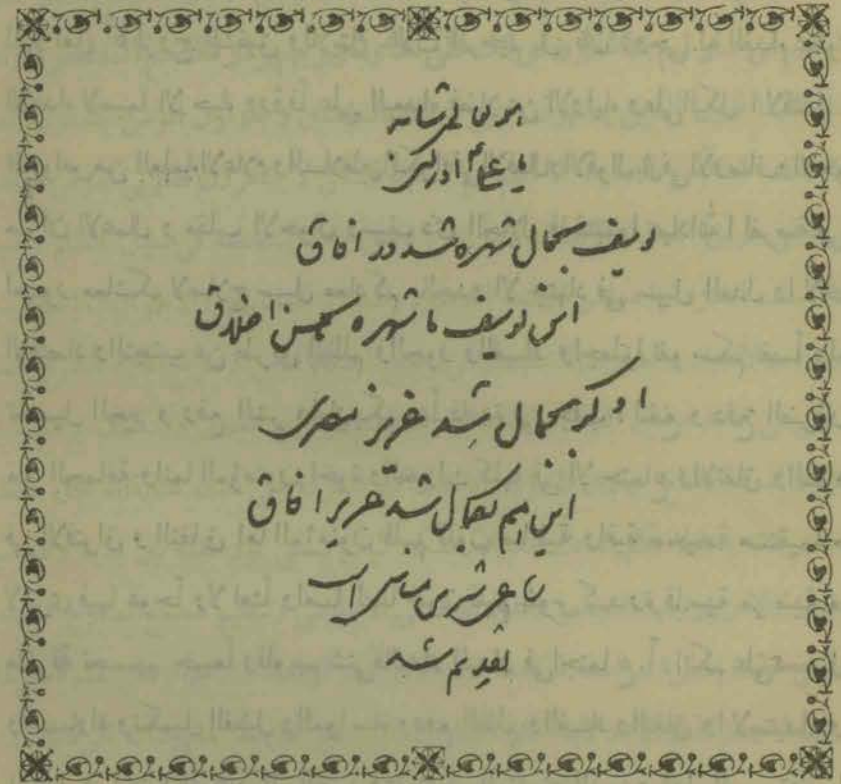 هو تعالی شانه
یا علی ادرکنی
یوسف بجمال شهره شد در افاق
این یوسف ما شهره بحسن اخلاق
او گو بجمال شد عزیز مصری
این هم بکمال شد عزیز افاق
تقدیم شد